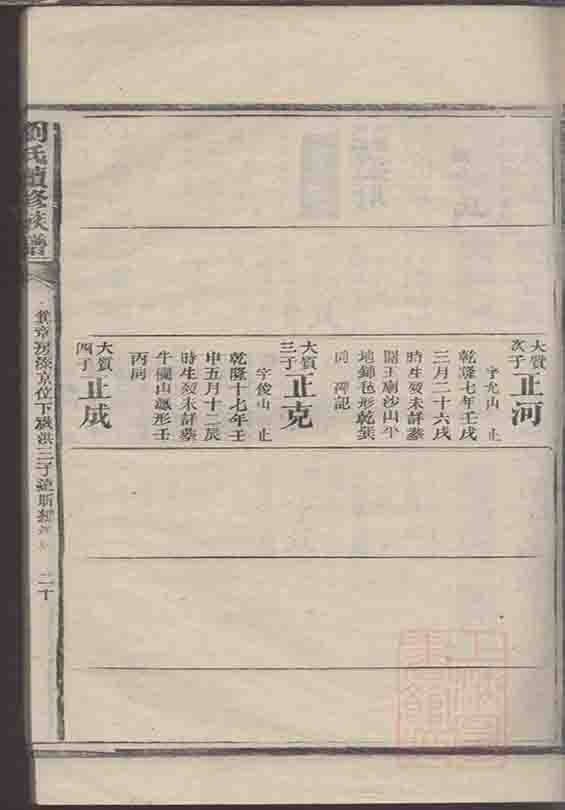 大質次子
正河
字允山 止
乾隆七年壬戌
三月二十六戌
時生歿未詳葬
關王廟沙山午
地獅毛形乾巽
向 碑記
大質三子
正克
字俊山 止
乾隆十七年壬
申五月十二辰
時生歿未詳葬
牛欄山 形壬
丙向
大質四子
正成
劉氏續修族譜
房 京位下 洪三子 斯
二十